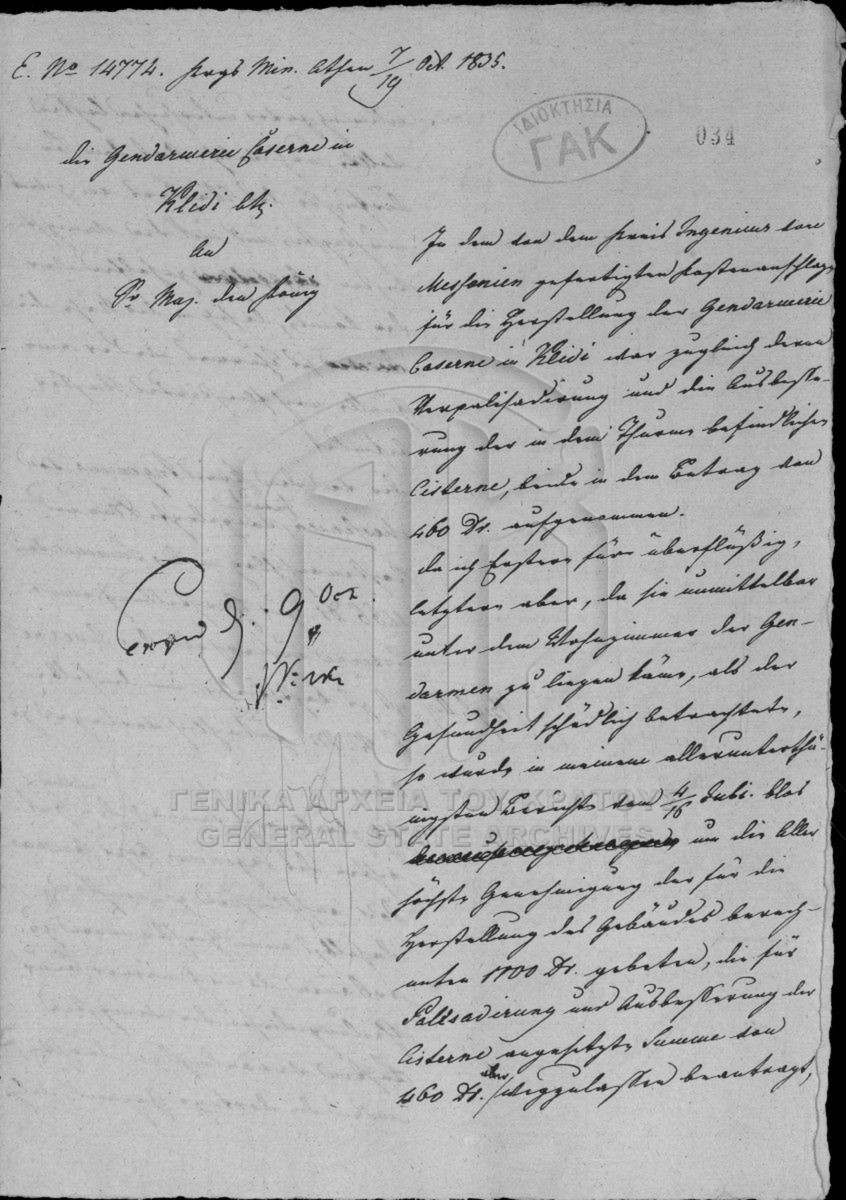 E. No 14774. Krgs Min. Athen 7/19 Oct. 1835.
ΙΔΙΟΚΤΗΣΙΑ
ΓΑΚ
034
die Gendarmerie Caserne in
Klidi btr.
An
Sr. Maj. den König
In dem von dem Kreis Ingenieur von
Messenien gefertigten Kostenanschlage
für die Herstellung der Gendarmerie
Caserne in Klidi war zugleich deren
Verpalisadirung und die Ausbesse-
rung der in dem Thurme befindlichen
Cisterne, beide in dem Betrag von
460 Dr. aufgenommen.
da ich Erstere für überflüßig,
letztere aber, da sie unmittelbar
unter dem Wohnzimmer der Gen-
darmen zu liegen käme, als der
Gesundheit schädlich betrachtete,
so wurde in meinem allerunterthä-
nigsten Berichte vom 4/16 Juli. blos
um die Aller
höchste Genehmigung der für die
Herstellung des Gebäudes berech-
neten 1700 Dr. gebeten, die für
Pallisadirung und Ausbesserung der
Cisterne angesetzte Summe von
460 Dr. aber wegzulassen beantragt,
9 Oct.
ΓΕΝΙΚΑ ΑΡΧΕΙΑ ΤΟΥ ΚΡΑΤΟΥΣ
GENERAL STATE ARCHIVES